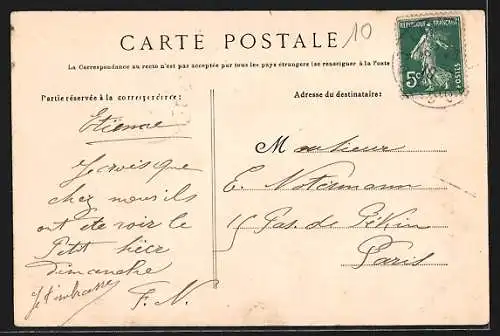 CARTE POSTALE
10
La Correspondance au recto n'est pas acceptée par tous les pays étrangers (se renseigner à la Poste
REPUBLIQUE FRANÇAISE
5c
POSTES
Partie réservée à la correspondance:
Adresse du destinataire:
Etienne
Je crois que
chez nous ils
ont été voir le
Petit hier
Dimanche
Je t'embrasse
F. N.
Monsieur
E. Notermann
15 Pas. de Pékin
Paris